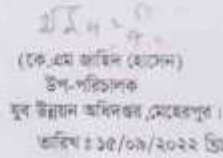 (কে.এম জাহিদ হোসেন)
উপ-পরিচালক
যুব উন্নয়ন অধিদপ্তর ,মেহেরপুর ।
তারিখ ঃ ১৫/০৯/২০২২ খ্রি